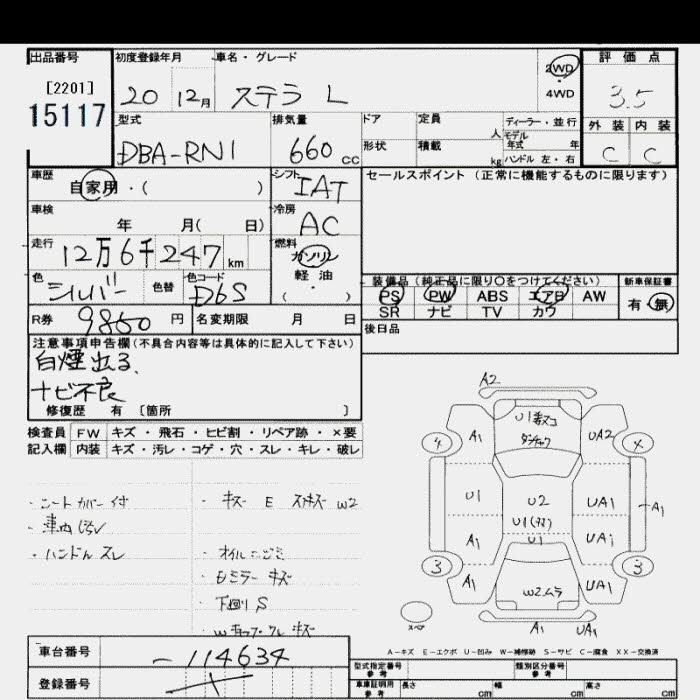 出品番号 初度登録年月 車名・グレード 評価点
[2201]
15117
20 12月 ステラ L 2WD 3.5
4WD
型式 排気量 ドア 定員 ディーラー・並行 外装 内装
人 モデル
年式 年
DBA-RN1 660cc 形状 積載 kg ハンドル 左・右 C C
車歴 シフト セールスポイント (正常に機能するものに限ります)
自家用・( ) IAT
車検 冷房
年 月( 日) AC
走行 燃料
12万6千247km ガソリン
色 色替 色コード 軽油 装備品 (純正品に限り〇をつけてください) 新車保証書
シルバー D6S ( ・ ) PS PW ABS エアB AW 有・無
SR ナビ TV カワ
R券 9860円 名変期限 月 日 後日品
注意事項申告欄(不具合内容等は具体的に記入して下さい)
白煙出る、
ナビ不良
修復歴 有 [箇所 ]
検査員 FW キズ・飛石・ヒビ割・リペア跡・×要
記入欄 内装 キズ・汚レ・コゲ・穴・スレ・キレ・破レ
A2
4 A1 U1 UA2 ×
U1 U2 UA1
U1 A1
A1 U1 UA1
3 A1 W2ムラ UA1 3
スペア A1 UA1
・シートカバー付
・車内汚レ
・ハンドルスレ
・キズ E W2
・オイルニジミ
・ミラーキズ
・下回りS
A-キズ E-エクボ U-凹み W-補修跡 S-サビ C-腐食 XX-交換済
車台番号 -114634
登録番号
型式指定番号 参考 類別区分番号 参考
車庫証明用 参考 長さ cm 幅 cm 高さ cm